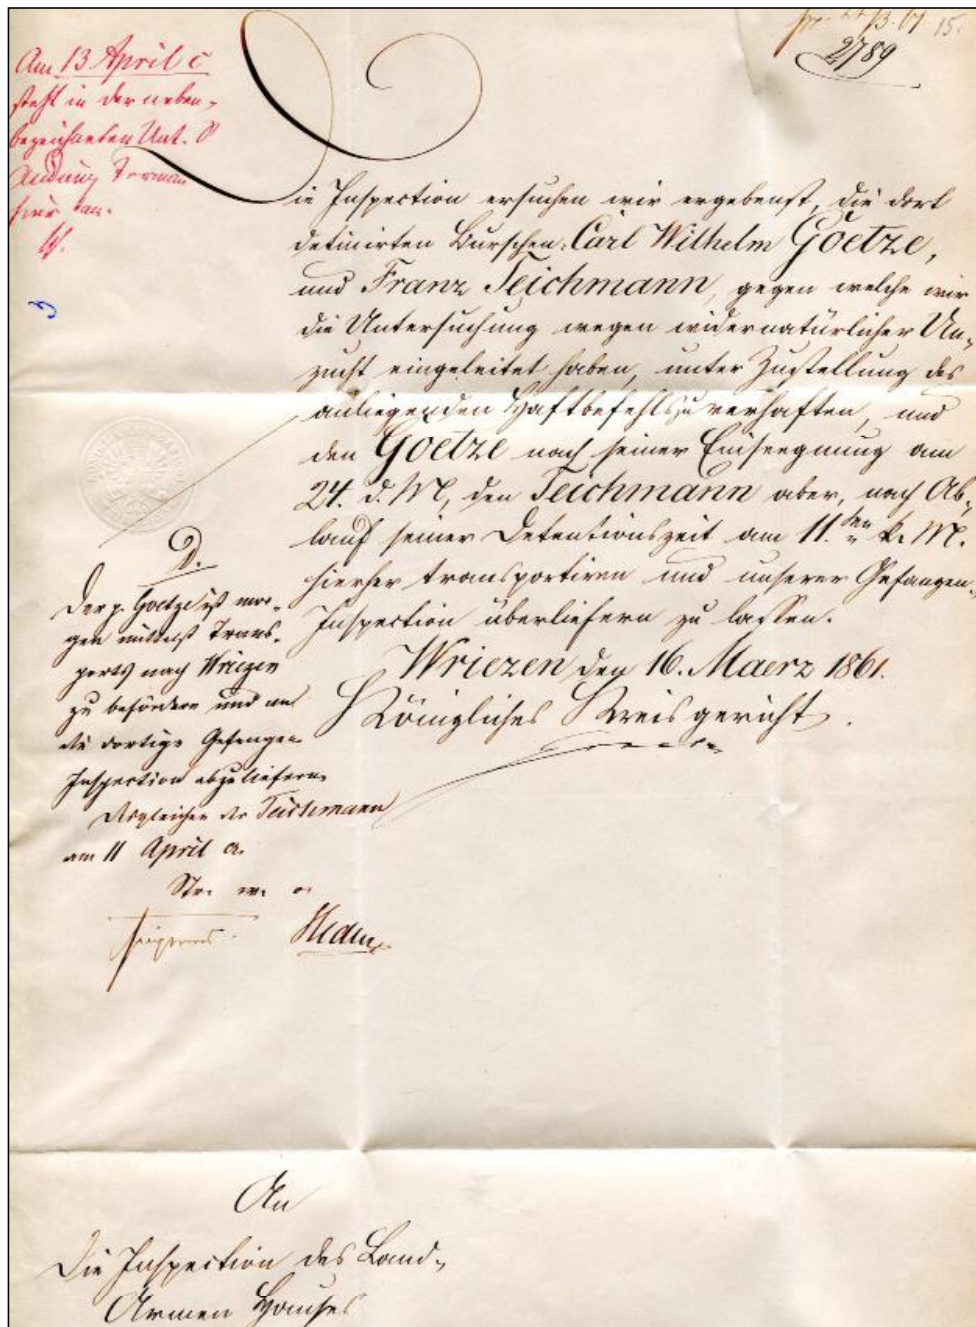 pr. 22/3. 61 15.
2789
Am 13 April c
steht in der neben-
bezeichneten Unt. S
Audienz Termin
hier an.
Die Inspection ersuchen wir ergebenst, die dort
detinirten Burschen: Carl Wilhelm Goetze,
und Franz Teichmann, gegen welche wir
die Untersuchung wegen widernatürlicher Un-
zucht eingeleitet haben, unter Zustellung des
anliegenden Haftbefehls zu verhaften, und
den Goetze nach seiner Einseegnung am
24. d. M, den Teichmann aber, nach Ab-
lauf seiner Detentionszeit am 11.ten k. M.
hierher transportiren und unserer Gefangen-
Inspection überliefern zu lassen.
Wriezen den 16. Maerz 1861.
Königliches Kreisgericht.
D.
Der p. Goetze ist mor-
gen mittelst Trans-
ports nach Wriezen
zu befördern und an
die dortige Gefangen
Inspection abzuliefern.
Desgleichen der Teichmann
am 11 April a.
Str. w. o.
An
Die Inspection des Land-
Armen Hauses